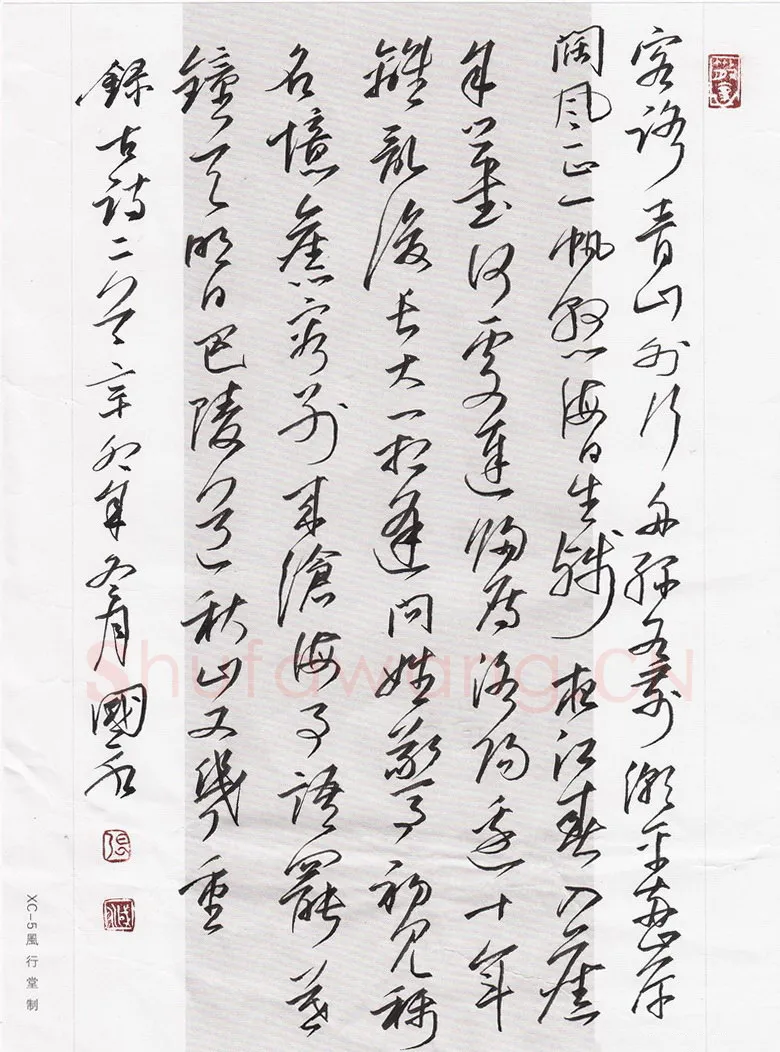 客路青山外行舟綠水前潮平兩岸
闊風正一帆懸海日生殘夜江春入舊
年鄉書何處達歸雁洛陽邊十年
離亂後長大一相逢問姓驚初見稱
名憶舊容別來滄海事語罷暮
鐘天明日巴陵道秋山又幾重
錄古詩二首辛卯年冬月國永
張
XC-5風行堂制
Shufawang.CN